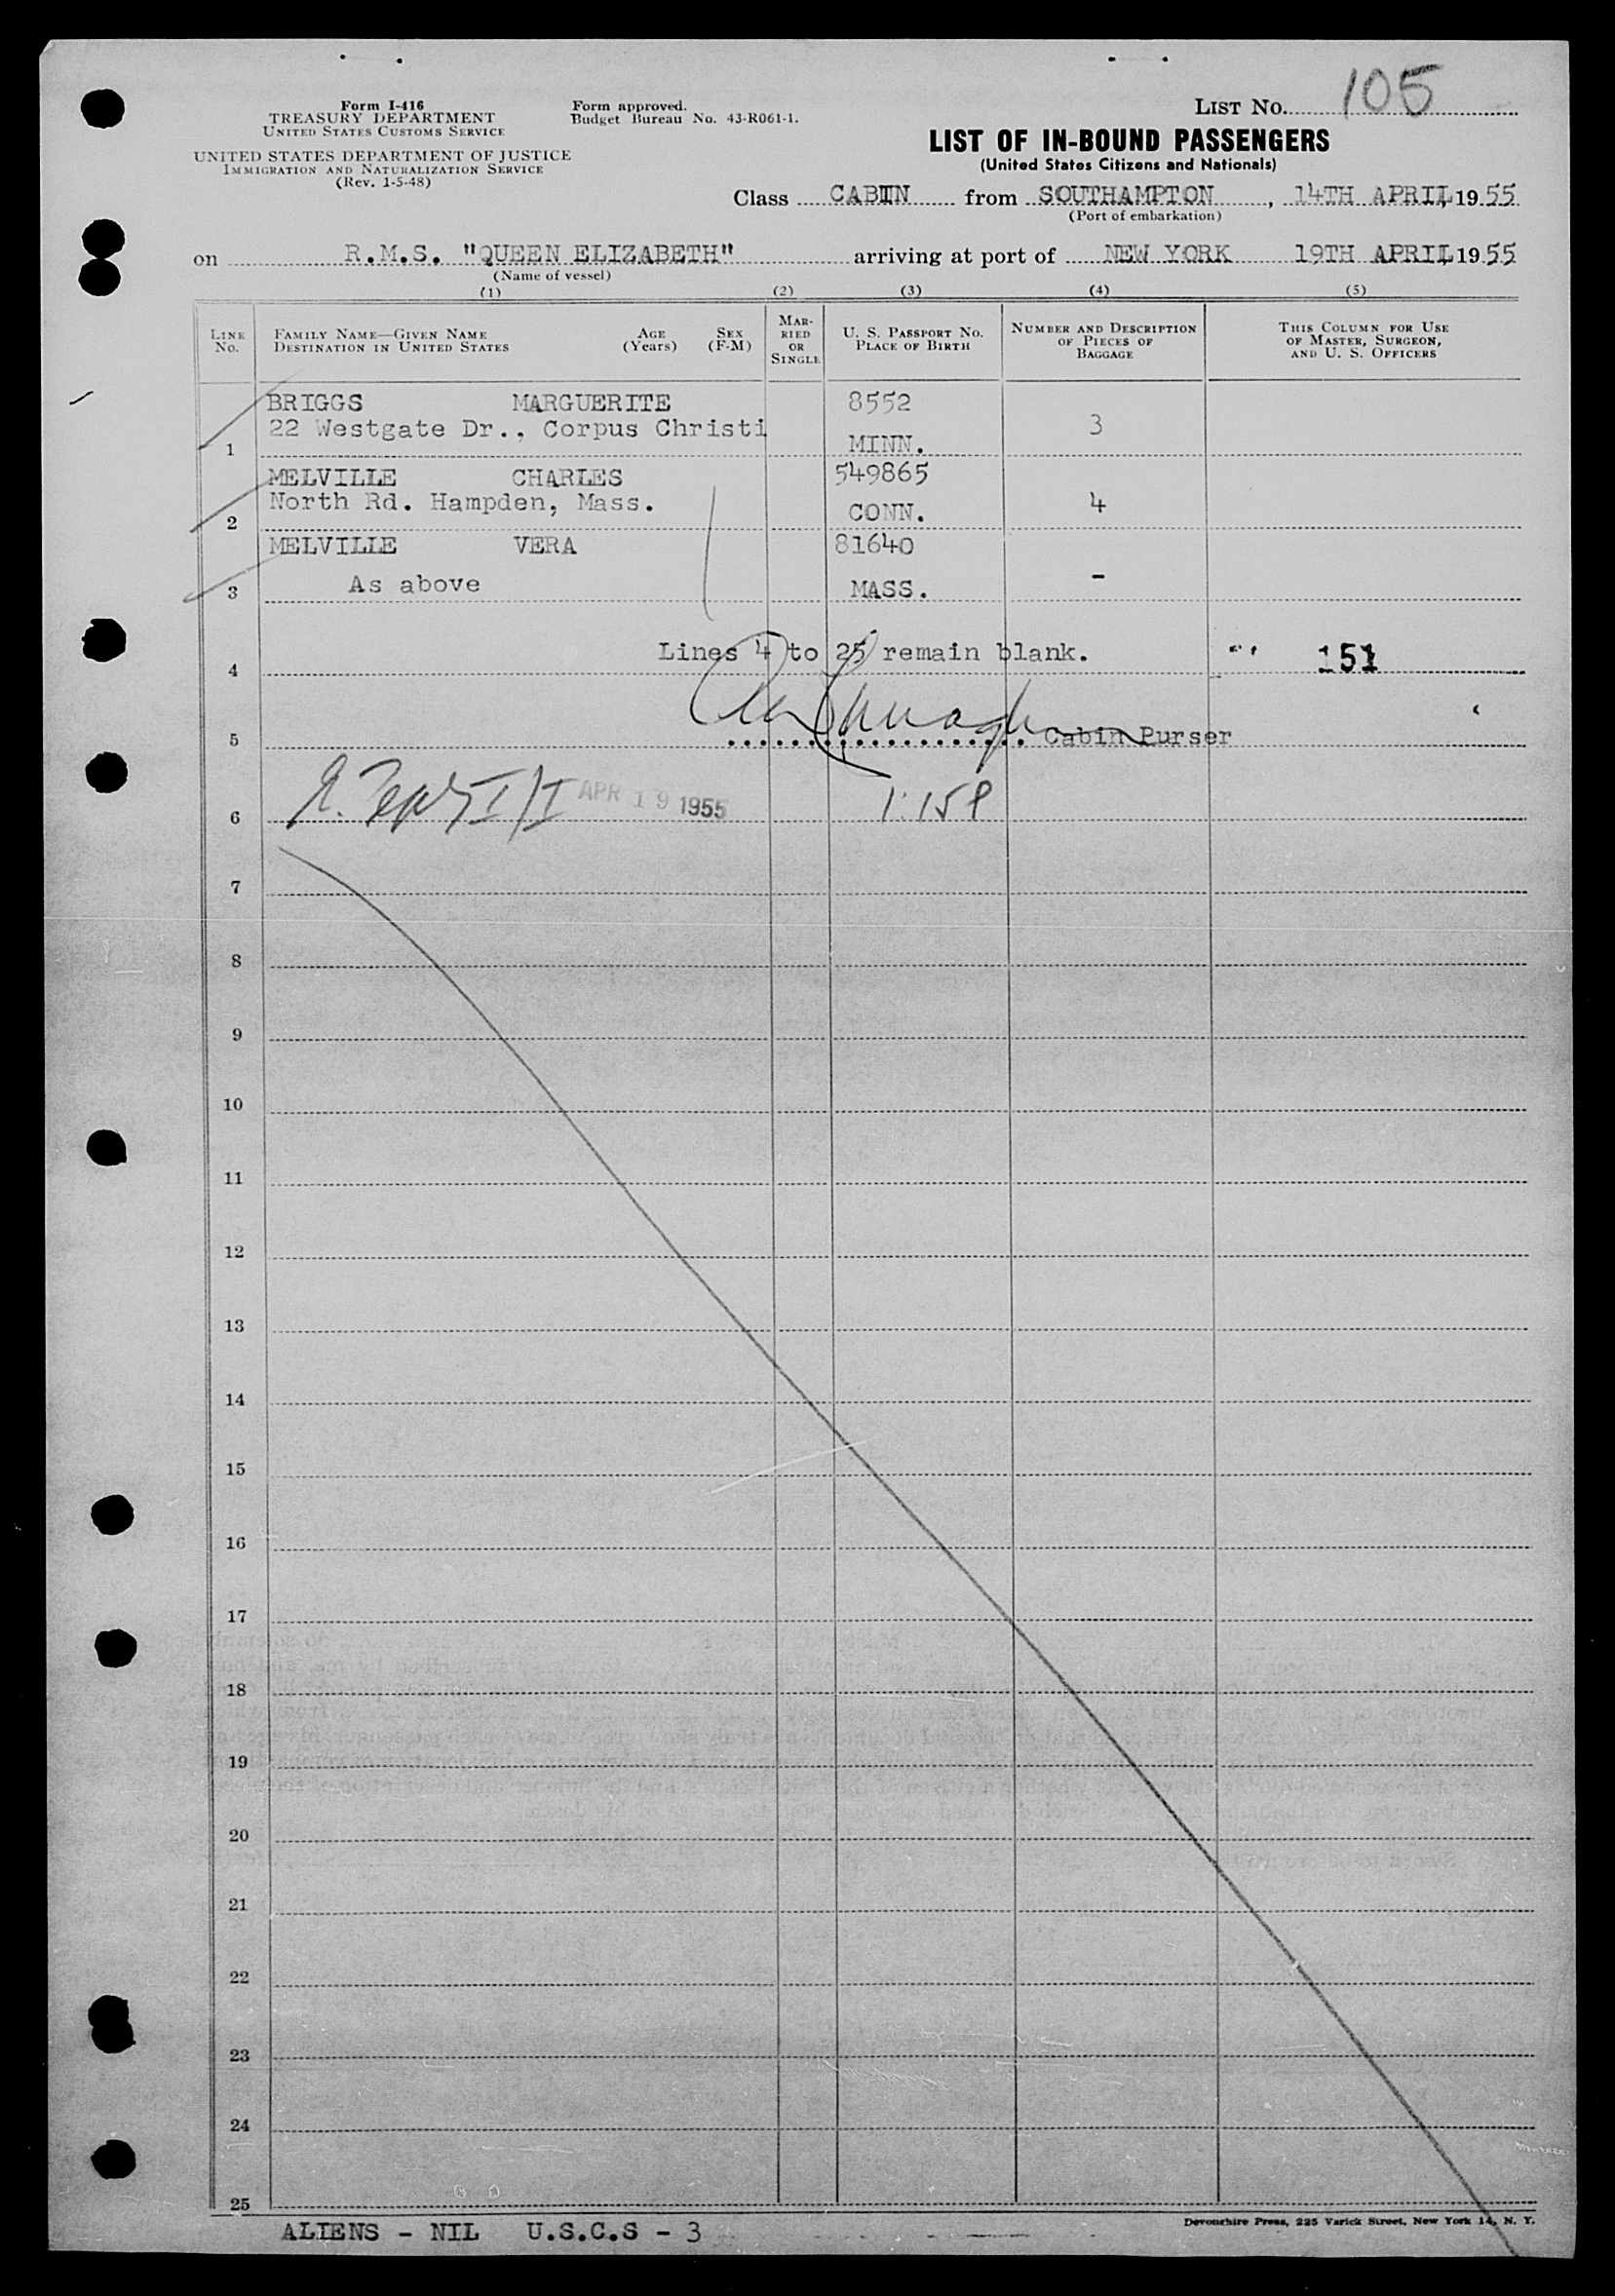 Form I-416
TREASURY DEPARTMENT
UNITED STATES CUSTOMS SERVICE
UNITED STATES DEPARTMENT OF JUSTICE
IMMIGRATION AND NATURALIZATION SERVICE
(Rev. 1-5-48)
Form approved.
Budget Bureau No. 43-R061-1.
LIST NO. 105
LIST OF IN-BOUND PASSENGERS
(United States Citizens and Nationals)
Class CABIN from SOUTHAMPTON, 14TH APRIL, 1955
(Port of embarkation)
on R.M.S. "QUEEN ELIZABETH" arriving at port of NEW YORK 19TH APRIL, 1955
(Name of vessel)
(1) (2) (3) (4) (5)
LINE No. FAMILY NAME—GIVEN NAME DESTINATION IN UNITED STATES AGE (Years) SEX (F-M) MARRIED OR SINGLE U. S. PASSPORT NO. PLACE OF BIRTH NUMBER AND DESCRIPTION OF PIECES OF BAGGAGE THIS COLUMN FOR USE OF MASTER, SURGEON, AND U. S. OFFICERS
BRIGGS MARGUERITE 8552
22 Westgate Dr., Corpus Christi 3
1 MINN.
MELVILLE CHARLES 549865
North Rd. Hampden, Mass. 4
2 CONN.
MELVILLE VERA 81640
As above -
3 MASS.
Lines 4 to 25 remain blank. 151
4
5 Cabin Purser
6 APR 19 1955
7
8
9
10
11
12
13
14
15
16
17
18
19
20
21
22
23
24
25
ALIENS - NIL U.S.C.S - 3
Devonshire Press, 225 Varick Street, New York 14, N. Y.